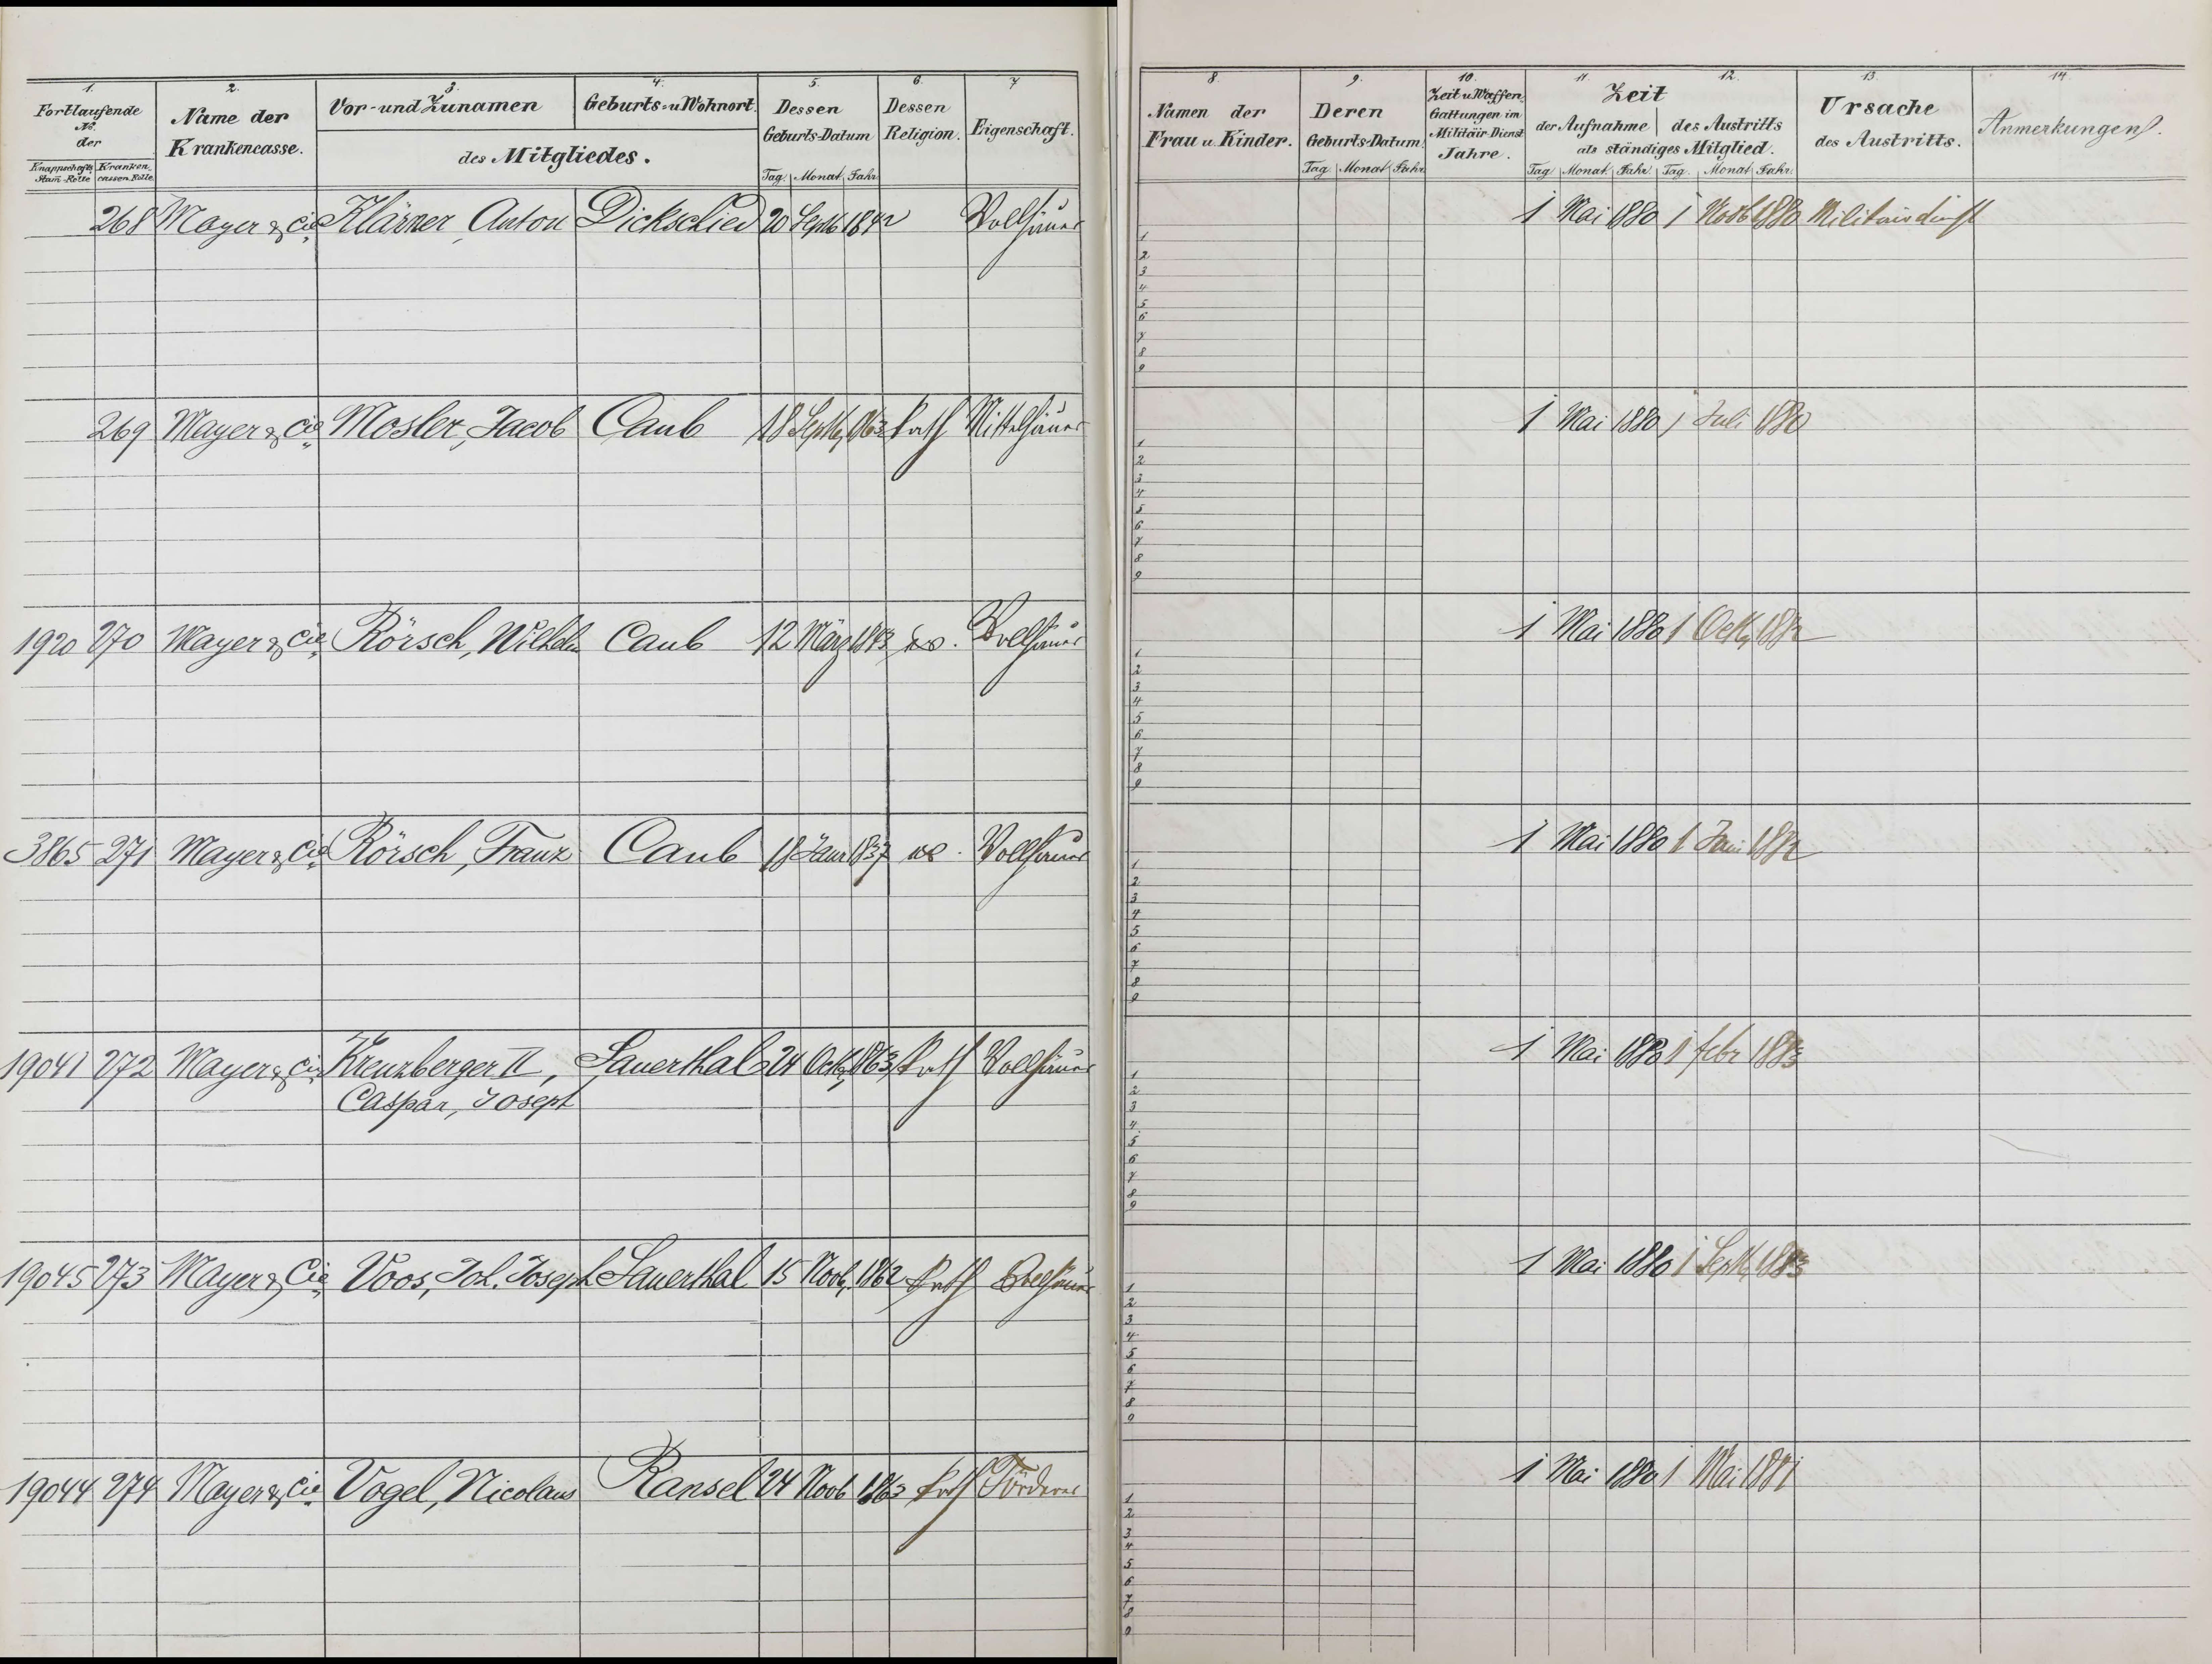 1. 2. 3. 4. 5. 6. 7
Fortlaufende No. der
Knappschafts Stam-Rolle Kranken cassen Rolle
Name der Krankencasse.
Vor- und Zunamen Geburts- u Wohnort.
des Mitgliedes.
Dessen Geburts-Datum
Tag. Monat Jahr
Dessen Religion.
Eigenschaft.
268 Mayer & Cie Klärner, Anton Dickschied 20 Septb 1842 Vollhäuer
269 Mayer & Cie Mosler, Jacob Caub 18 Septb 1863 kath Mittelhäuer
1920 270 Mayer & Cie Rörsch, Wilhelm Caub 12 März 1843 Vollhäuer
3865 271 Mayer & Cie Rörsch, Franz Caub 18 Janr 1837 Vollhäuer
19041 272 Mayer & Cie Kreuzberger II, Sauerthal 24 Octb 1863 kath Vollhäuer
Caspar, Joseph
19045 273 Mayer & Cie Voos, Joh. Joseph Sauerthal 15 Novb. 1862 kath Vollhäuer
19044 274 Mayer & Cie Vogel, Nicolaus Ransel 24 Novb 1863 kath Förderer
8. 9. 10. 11. 12. 13. 14.
Namen der Frau u. Kinder.
Deren Geburts-Datum
Tag Monat Jahr
Zeit u Waffen Gattungen im Militäir-Dienst Jahre.
Zeit
der Aufnahme des Austritts
als ständiges Mitglied.
Tag Monat Jahr Tag. Monat Jahr
Ursache des Austritts.
Anmerkungen.
1 Mai 1880 1 Novb 1880 Militairdienst
1
2
3
4
5
6
7
8
9
1 Mai 1880 1 Juli 1880
1
2
3
4
5
6
7
8
9
1 Mai 1880 1 Octb 1882
1
2
3
4
5
6
7
8
9
1 Mai 1880 1 1882
1
2
3
4
5
6
7
8
9
1 Mai 1880 1 febr 1883
1
2
3
4
5
6
7
8
9
1 Mai 1880 1 Septb 1883
1
2
3
4
5
6
7
8
9
1 Mai 1880 1 Mai 1881
1
2
3
4
5
6
7
8
9